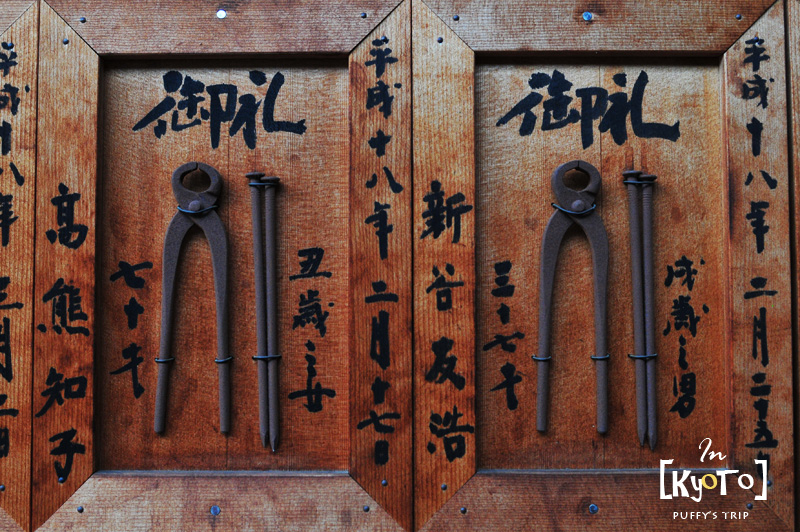 御礼
平成十八年二月二十五
戌歳之男
三十七才
新谷友浩
御礼
平成十八年二月十七日
丑歳之女
七十才
高熊知子
平成十八年三月
In
[KyoTo]
PUFFY'S TRIP